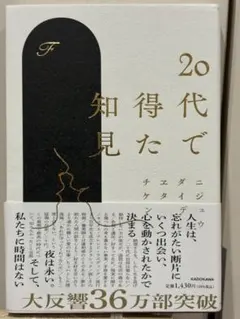 F
20代で
得た
知見
ニジュウ
ダイデ
エタ
チケン
人生は、
忘れがたい断片に
いくつ出会い、
心を動かされたかで
決まる
夜は永い。
そして、
私たちに時間はない
KADOKAWA
定価1,430円
大反響36万部突破